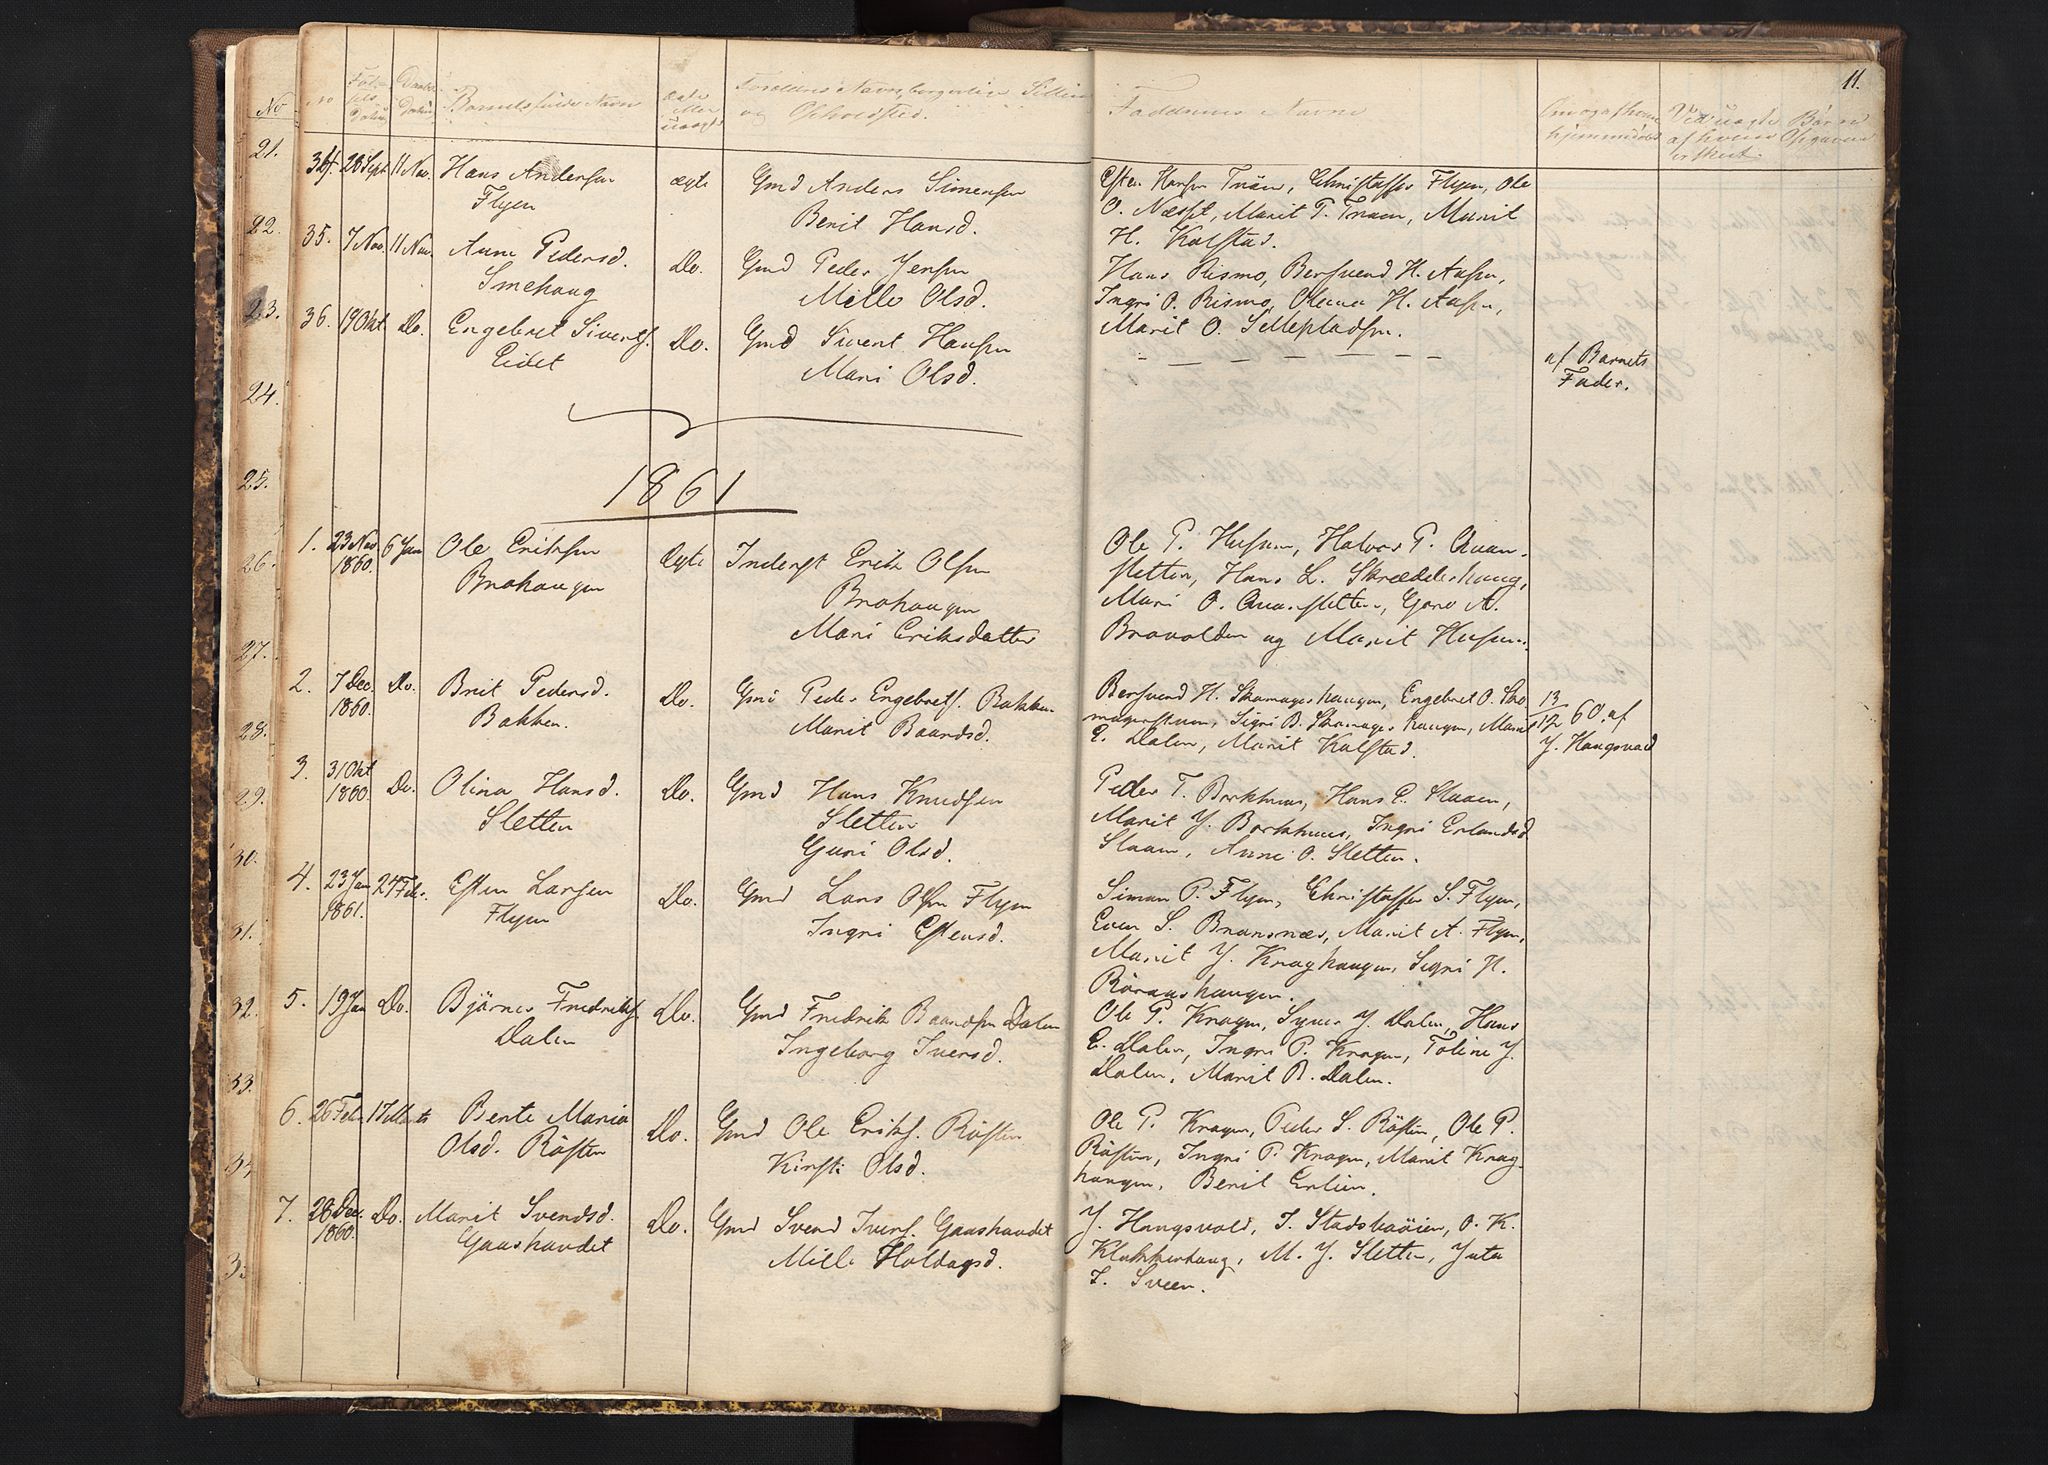 No
21.
22.
23.
24.
25.
26.
27.
28.
29.
30.
31.
32.
33.
34
3
No
Fødsels Datum
Daabs Datum
Barnets fulde Navn
ægte eller uægte
Forældres Navn, borgerlige Stilling
og Opholdsted.
Faddernes Navne
11.
34. 28 Sept 11 Nov. Hans Andersen
Flyen
ægte Gmd Anders Simensen
Berit Hansd.
Esten Hansen Trøen, Christoffer Flyen, Ole
O. Næsset, Marit P. Trøen, Marit
H. Kalstad.
35. 7 Nov. 11 Nov. Anne Pedersd.
Smehaug
Do. Gmd Peder Jensen
Mille Olsd.
Hans Rismo, Bersvend H. Aasen,
Ingri O. Rismo, Olena H. Aasen,
Marit O. Sættepladsen.
36. 19 Okt Do. Engebret Siverts.
Eidet
Do. Gmd Sivert Hansen
Mari Olsd.
– – – – – – –
af Barnets
Fader.
1861
1. 23 Nov 1860. 6 Jan Ole Eriksen
Brohaugen
Ægte Inderst Erik Olsen
Brohaugen
Mari Eriksdatter
Ole P. Husum, Halvor P. Quan-
sletten, Hans L. Skrædderhaug,
Mari O. Quansletten, Goro A.
Brovolden og Marit Husum.
2. 7 Dec. 1860. Do. Brit Pedersd.
Bakken.
Do. Gmd Peder Engebrets. Bakken
Marit Baardsd.
Bersvend H. Skomagerhaugen, Engebret O. Sko
magerstuen, Sigri B. Skomagerhaugen, Marit
E. Dalen, Marit Kalstad.
13/12 60. af
J. Haugsvold
3. 31 Okt 1860. Do. Olina Hansd.
Sletten
Do. Gmd Hans Knudsen
Sletten
Guri Olsd.
Peder T. Borkhuus, Hans E. Slaaen,
Marit J. Borkhuus, Ingri Erlandsd
Slaaen, Anne O. Sletten.
4. 23 Jan 1861. 24 Feb. Esten Larsen
Flyen
Do. Gmd Lars Olsen Flyen
Ingri Estensd.
Simen P. Flyen, Christoffer S. Flyen,
Even S. Bransnæs, Marit A. Flyen,
Marit J. Kraghaugen, Sigri H.
Røraashaugen.
5. 19 Jan Do. Bjørnes Fredriks.
Dalen
Do. Gmd Fredrik Baardsen Dalen
Ingeborg Iversd.
Ole P. Kragen, Syver J. Dalen, Hans
E. Dalen, Ingri P. Kragen, Toline J.
Dalen, Marit B. Dalen.
6. 26 Feb. 17 Marts Bente Maria
Olsd. Røsten
Do. Gmd Ole Eriks. Røsten
Kirsti Olsd.
Ole P. Kragen, Peder S. Røsten, Ole P.
Røsten, Ingri P. Kragen, Marit Krag-
haugen, Berit Erlien.
7. 28 Dec. 1860. Do. Marit Svendsd.
Gaashaudet
Do. Gmd Svend Ivers. Gaashaudet
Mille Haldogsd.
J. Haugsvold, I. Stadshaøien, O. K.
Klokkerhaug, M. J. Sletten, Juta
I. Sveen.